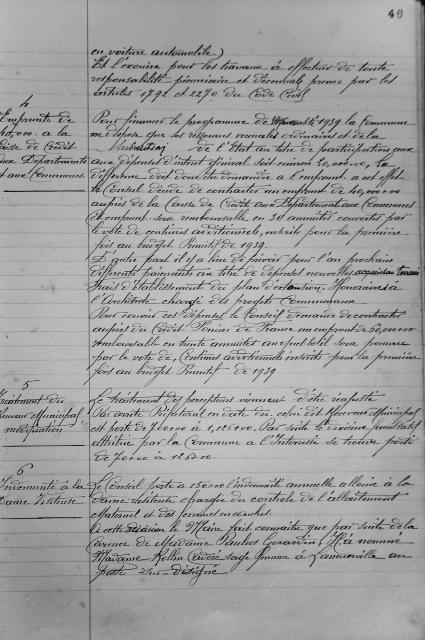 46
en voiture automobile)
Et l'exonère pour les travaux à effectuer de toute
responsabilité pécuniaire et décennale prévue par les
articles 1792 et 2270 du Code Civil
4
Emprunts de
à la
Caisse de Crédit
aux Départements
et aux Communes
Pour financer le programme de 1939 la Commune
ne dispose que ses ressources normales ordinaires et de la
Subvention de l'Etat au titre de participation aux
aux dépenses d'intérêt soit environ 30,000.00, la
différence doit être demandée à l'emprunt. à cet effet
le Conseil décide de contracter un emprunt de
auprès de la Caisse de Crédit aux Départements aux Communes
Cet emprunt sera remboursable en 30 annuités couvertes par
le vote de centimes additionnels, inscrits pour la première
fois au budget Primitif de 1939.
D'autre part il y a lieu de prévoir pour l'an prochain
différents paiements au titre de dépenses nouvelles acquisition terrain
Frais d'établissement du plan d'extension, Honoraires à
l'Architecte chargé des projets Communaux
Pour couvrir ces dépenses le Conseil demande de contracter
auprès du Crédit Foncier de France un emprunt de
remboursable en trente annuités auquel il sera pourvu
par le vote de, Centimes additionnels inscrits pour la première
fois au budget Primitif de 1939
5
Traitement du
Receveur Municipal
Le traitement des percepteurs viennent d'être réajusté
Par arrêté Préfectoral en date du celui dit Receveur Municipal
est porté de à Par suite le
attribué par la Commune à l'Intéressé se trouve porté
de à
6
Indemnité à la
Dame Visiteuse
Le Conseil porte à l'indemnité annuelle allouée à la
dame visiteuse chargée du contrôle de l'allaitement
Maternel et des femmes en couches.
A cette occasion le Maire fait connaître que par suite de la
carence de Madame Paulus Gérardin, Il a nommé
Madame Rollin sage femme à Laneuveville au
poste sus-désigné